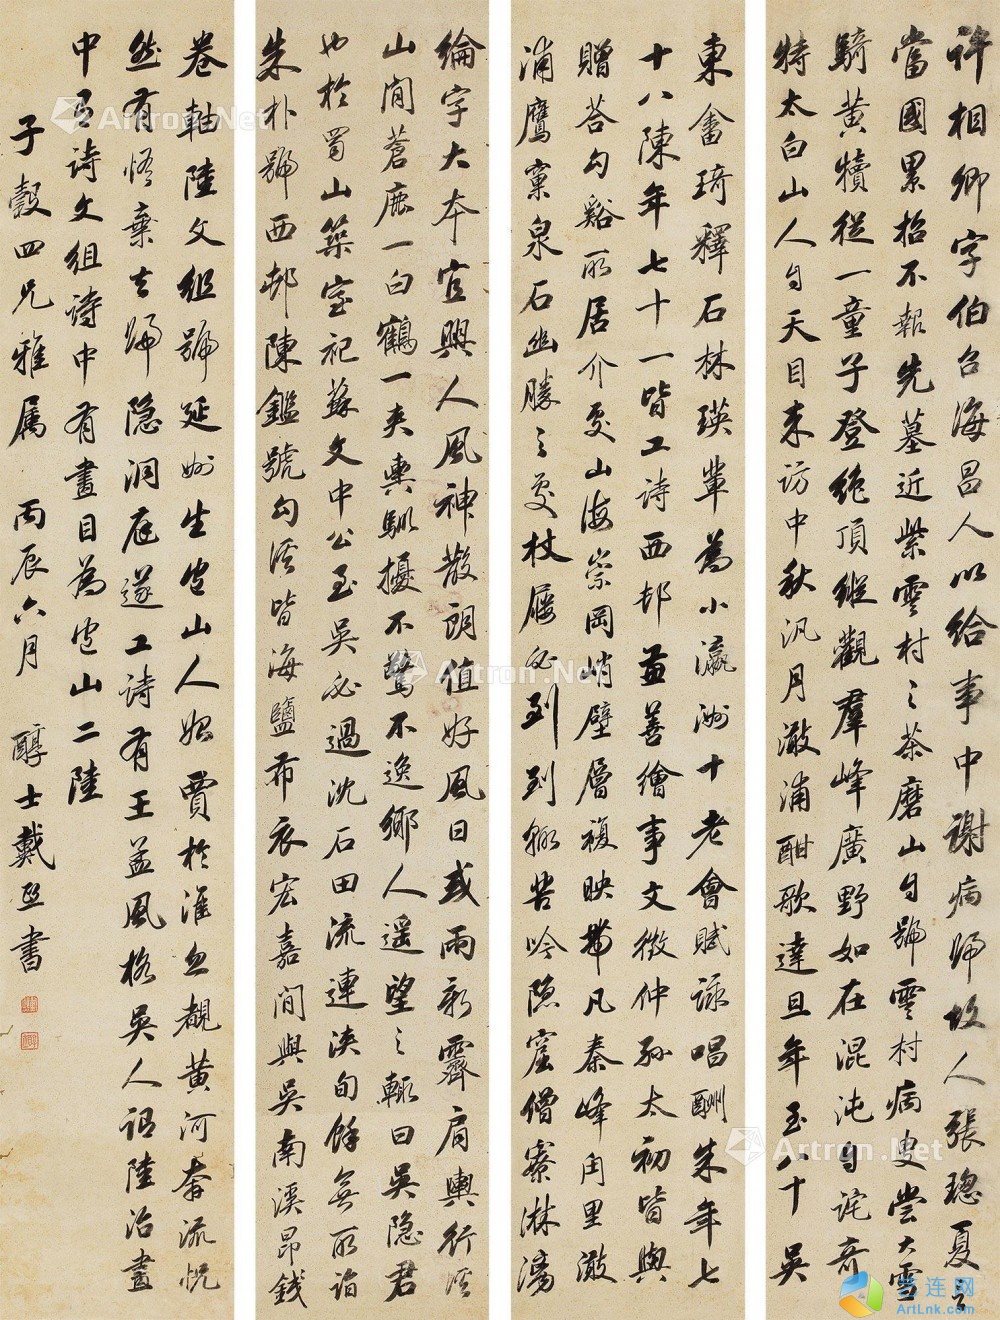 許相卿字伯台海昌人以給事中謝病歸故人張璁夏言
當國累招不報先墓近紫雲村之茶磨山自號雲村病史嘗大雪
騎黃犢從一童子登絕頂縱觀羣峰廣野如在混沌自詫奇
特太白山人自天目來訪中秋汎月澉浦酣歌達旦年至八十吳
東畬琦釋石林瑛輩為小瀛洲十老會賦詠唱酬朱年七
十八陳年七十一皆工詩西邨兼善繪事文徵仲孫太初皆與
贈荅勾谿所居介夏山海崇岡峭壁層複映帶凡秦峰甪里澉
浦鷹窠泉石幽勝之處杖屨必到到輒苦吟隱窟僧寮淋漓
綸字大本宜興人風神散朗值好風日或雨新霽肩輿行溪
山間蒼鹿一白鶴一夾輿馴擾不驚不逸鄉人遥望之輒曰吳隱君
也於蜀山築室祀蘇文中公至吳必過沈石田流連浹旬餘無所詣
朱朴號西邨陳鑑號勾溪皆海鹽布衣宏嘉間與吳南溪昂錢
卷軸陸文組號延州生包山人始賈於淮忽覩黃河奔流恍
然有悟棄去歸隱洞庭遂工詩有王孟風格吳人詔陸治畫
中有詩文組詩中有畫目為包山二陸
子穀四兄雅屬 丙辰六月 醇士戴熙書
Artron.Net
Artron.Net
Artron.Net
艺连网
ArtLnk.com